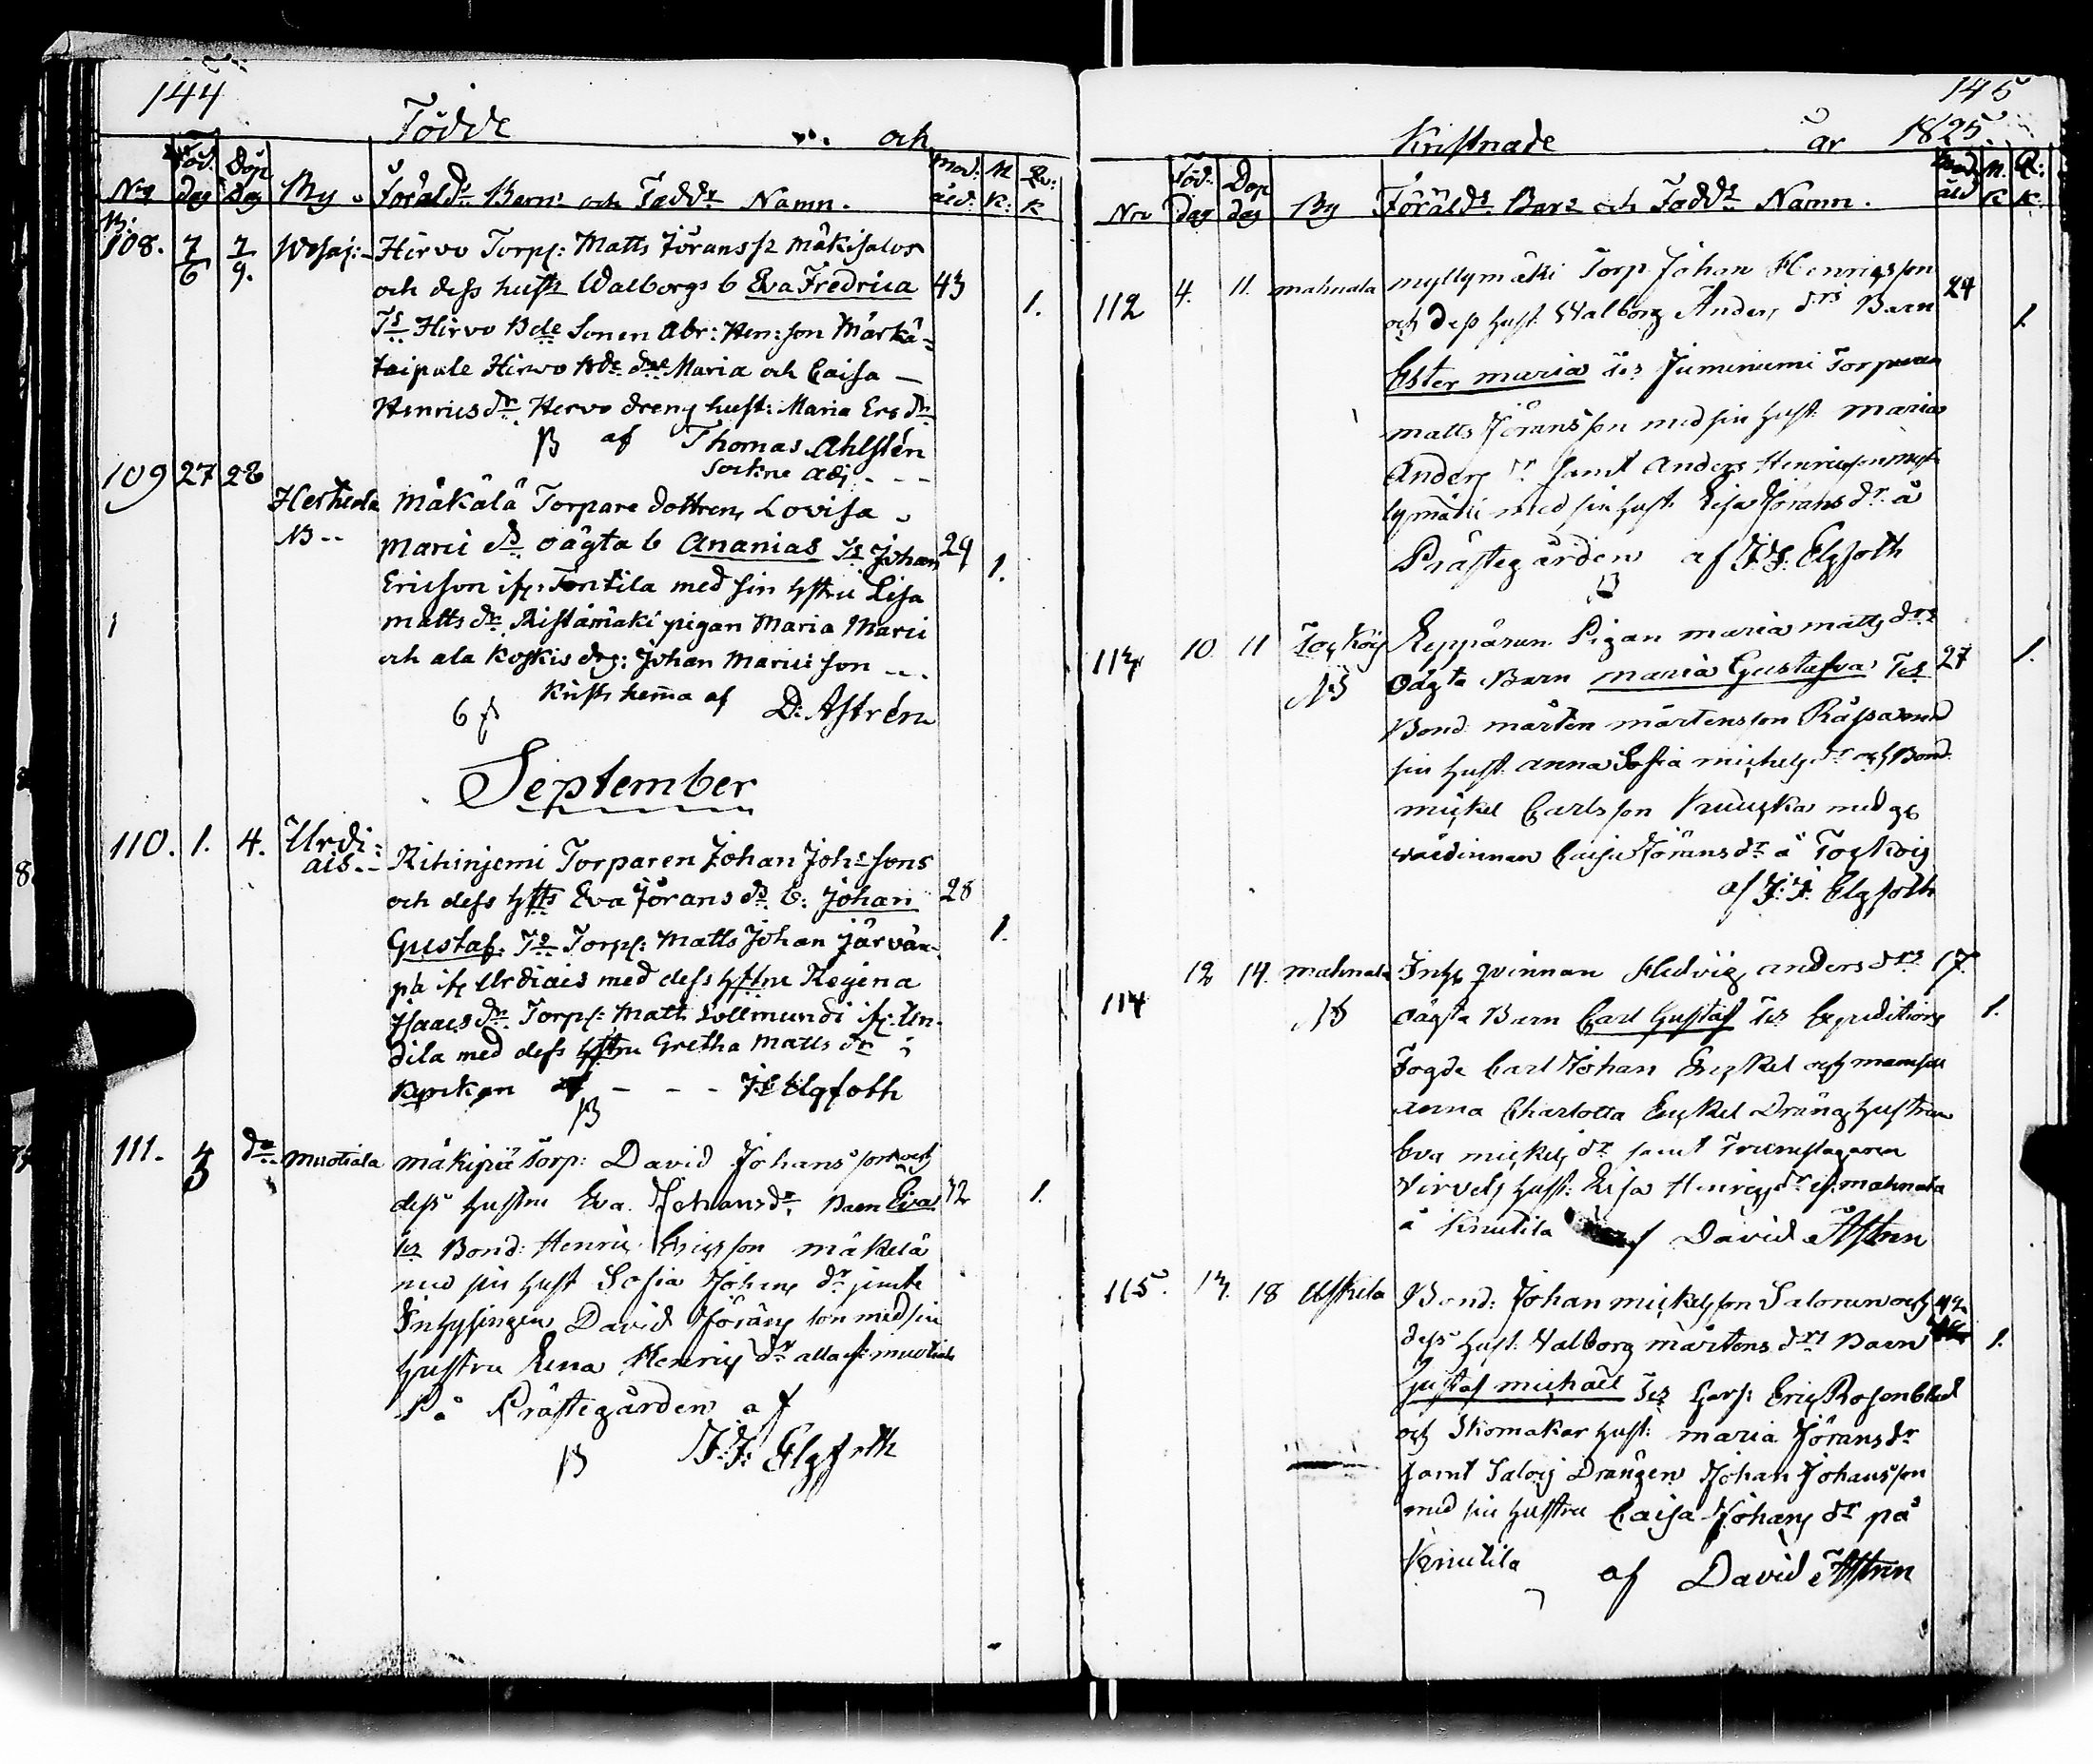 144
Födde och
No Föd. dag Döp dag By Föräld.r Barns och Fadd.r Namn. Mod: åld: M. K: Qv: K
108. 7/6 7/9. Hirvo Torp: Matts Jöransss Mäkisalos
och dess hustr Walborgs b Eva Fredrica 43 1.
Ts Hirvo Bde Sonen Abr: Hen: son Märkä-
taipale Hirvo Bde dr Maria och Caisa
Henrics dr Hervo dreng hust: Maria Ers dr
af Thomas Ahlstén
Sockne Adj
109 27 28
Heikkila Mäkälä Torpare dottren, Lovisa
NB Marci dr oägta b Ananias Ts Johan 29 1.
Ericson ifr: Tontila med sin hstru Lisa
Matts dr Ristamäki pigan Maria Marci
och ala Koskis drg: Johan Marici son
Kristn hema af D: Astrén
September
110. 1. 4. Urdi-
ais Riihinjemi Torparen Johan Johs sons
och dess hsts Eva Jörans dr b: Johan 28
Gustaf. Ts Torp: Matts Johan Järvän- 1.
pä ifr Urdiais med dess hstru Regina
Isaacs dr Torp: Matts Sollmundi ifr: Un-
dila med dess hstru Gretha Matts dr i
Kyrkan af JF Elgfoth
111. 3 do Muotiala Mäkipiä Torp: David Johans son och
dess hustru Eva Johans dr Barn Eva 32 1.
Ts Bond: Henric Ericsson Mäkelä
med sin hust Sofia Johans dr jemte
Inhysingen David Jörans son med sin
hustru Lena Henrics dr alla fr Muotiala
På Prästegården af
J: F: Elgfoth
145
Kristnade år 1825.
No Föd: dag Dop dag By Föräld.r Bars och Fadd.r Namn. Mod åld M. K Q: K.
112 4. 11. Mahnala Myllymäki Torp Johan Henricsson 24
och dess hust Walborg Anders drs Barn 1.
Ester Maria Ts Juminiemi Torparen
Matts Jöransson med sin hust Maria
Anders dr samt Anders Henricson Myl-
lymäki med sin hust Lisa Jörans dr å
Prästegården af J. F. Elgfoth
113 10 11 Kepparin Pigan Maria Matts drs
NB Oägta Barn Maria Gustafva Ts 27 1.
Bond Mårten Mårtensson Rässa med
sin hust Anna Sofia Michels dr och Bond
Mickel Carlsson med gl
värdinnan Caisa Jörans dr å
af J: F: Elgfoth
114 12 14. Mahnala Inhs qvinnan Hedvig Anders drs 17.
NB Oägta Barn Carl Gustaf Ts Expeditions 1.
Fogde Carl Johan Enckel och Mamsell
Anna Charlotta Enckel Dräng hustrun
Eva Mickels dr samt Trumslagaren
Virvels hust: Lisa Henrics dr if. Mahnala
å Knutila af David Astren
115. 13. 18 Uskila Bond: Johan Mickelsson Salonen och 42
dess hust: Valborg Mårtens drs Barn 1.
Gustaf Michaël Ts Garf: Eric Rosenblad
och Skomakar hust: Maria Jörans dr
samt Saloij Drängen Johan Johansson
med sin hustru Caisa Johans dr på
Knutila af David Astren